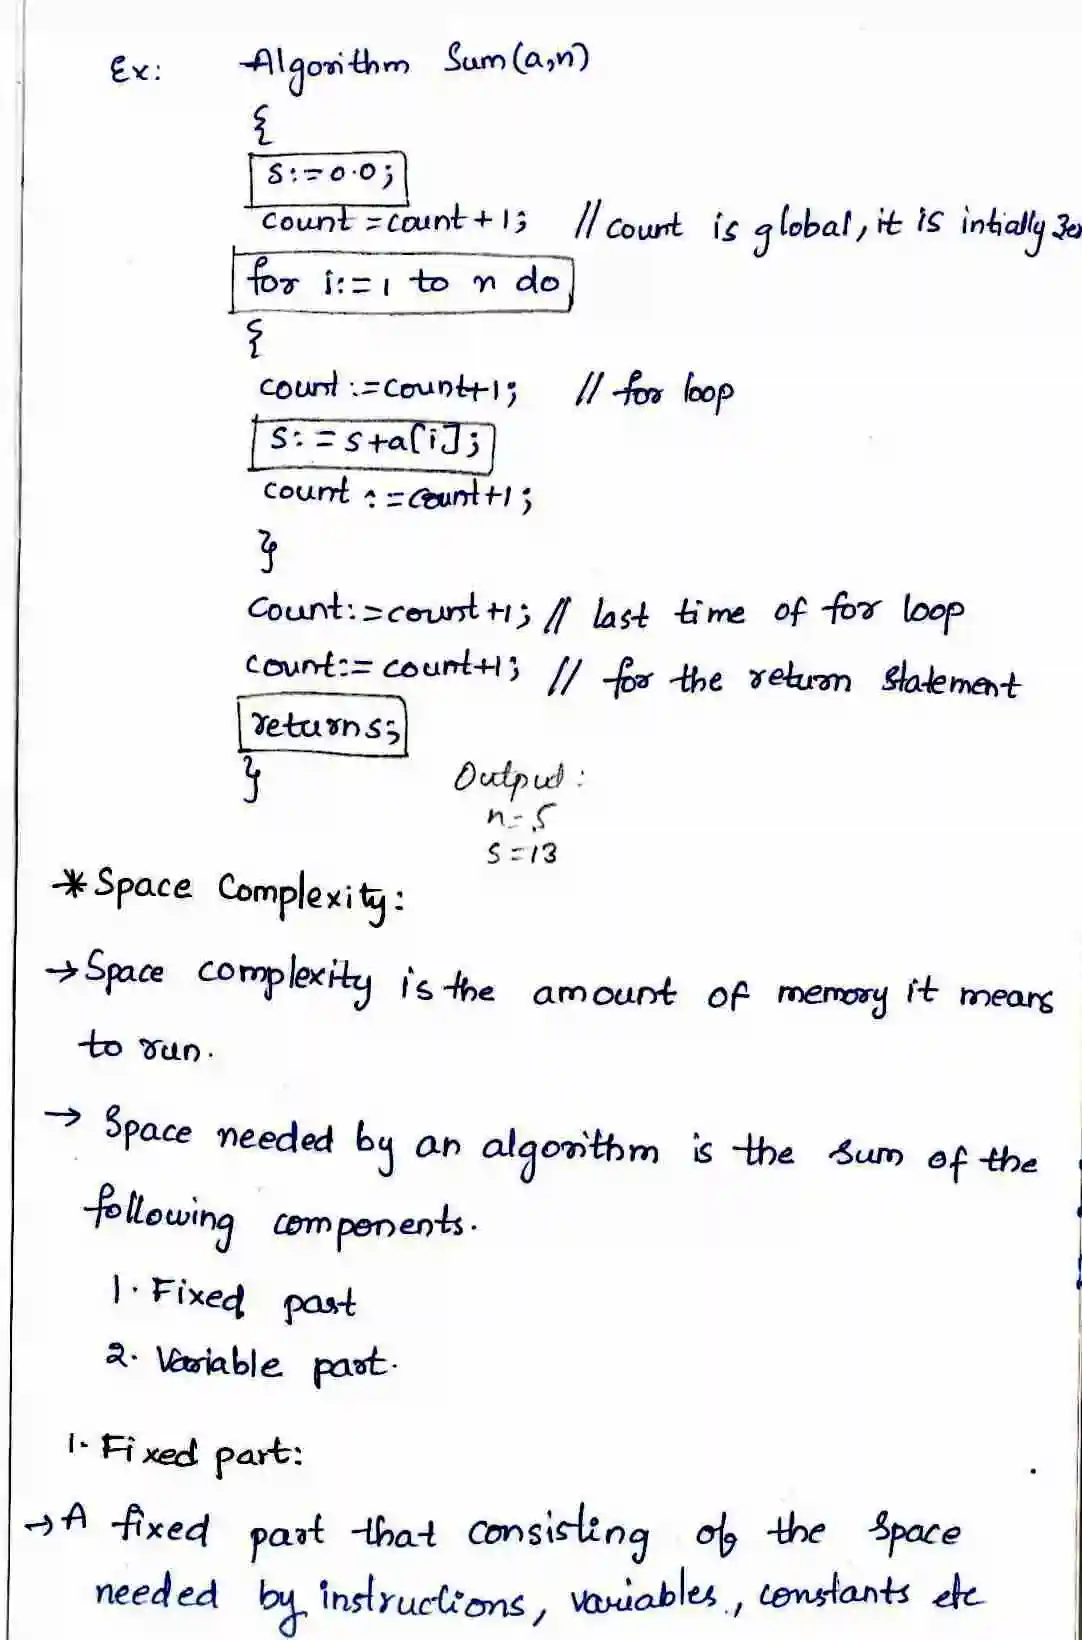 Ex: Algorithm Sum(a,n)
{
s:=0.0;
count =count+1; // count is global, it is intially
for i:=1 to n do
{
count :=count+1; // for loop
s:=s+a[i];
count :=count+1;
}
Count:=count+1; // last time of for loop
count:= count+1; // for the return statement
return s;
}
Output:
n=5
s=13
* Space Complexity:
→ Space complexity is the amount of memory it means
to run.
→ Space needed by an algorithm is the sum of the
following components.
1. Fixed part
2. Variable part.
1. Fixed part:
→ A fixed part that consisting of the space
needed by instructions, variables, constants etc